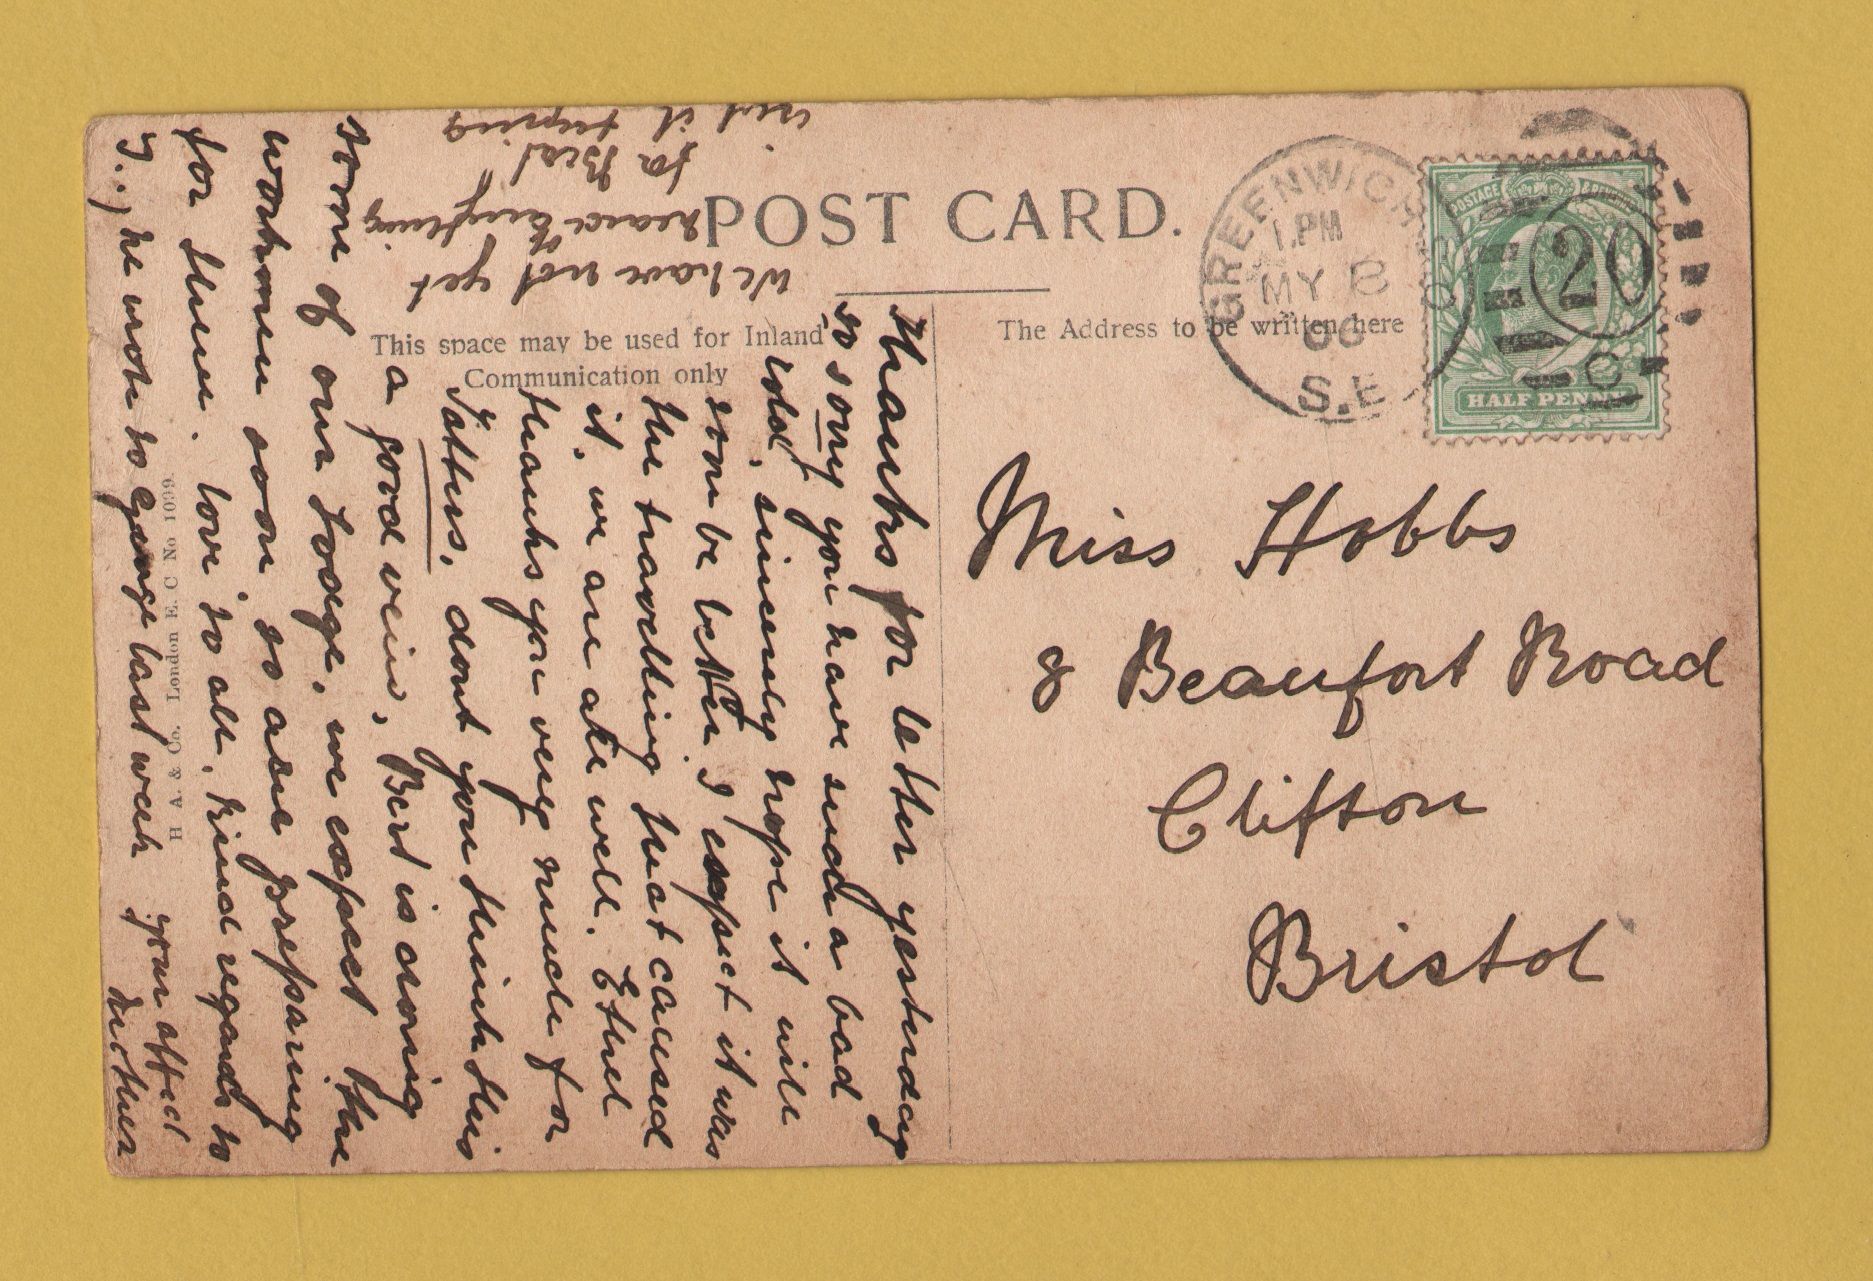 POST CARD.
This space may be used for Inland
Communication only
The Address to be written here
GREENWICH
1.PM
MY 8
06
S.E
20
POSTAGE & REVENUE
HALF PENNY
Miss Hobbs
8 Beaufort Road
Clifton
Bristol
Thanks for letter yesterday
so sorry you have such a bad
cold, sincerely hope it will
soon be better, I expect it was
the travelling that caused
it, we are all well. Ethel
thanks you very much for
Tatters, dont you think this
a good view, Bert is doing
some of our Lodge, we expect the
workmen soon so are preparing
for them. love to all, kind regards to
J., he wrote to George last week your affecd
Mother
We have not yet
heard of anything
for Beat.
H. A. & Co. London E. C No 1099